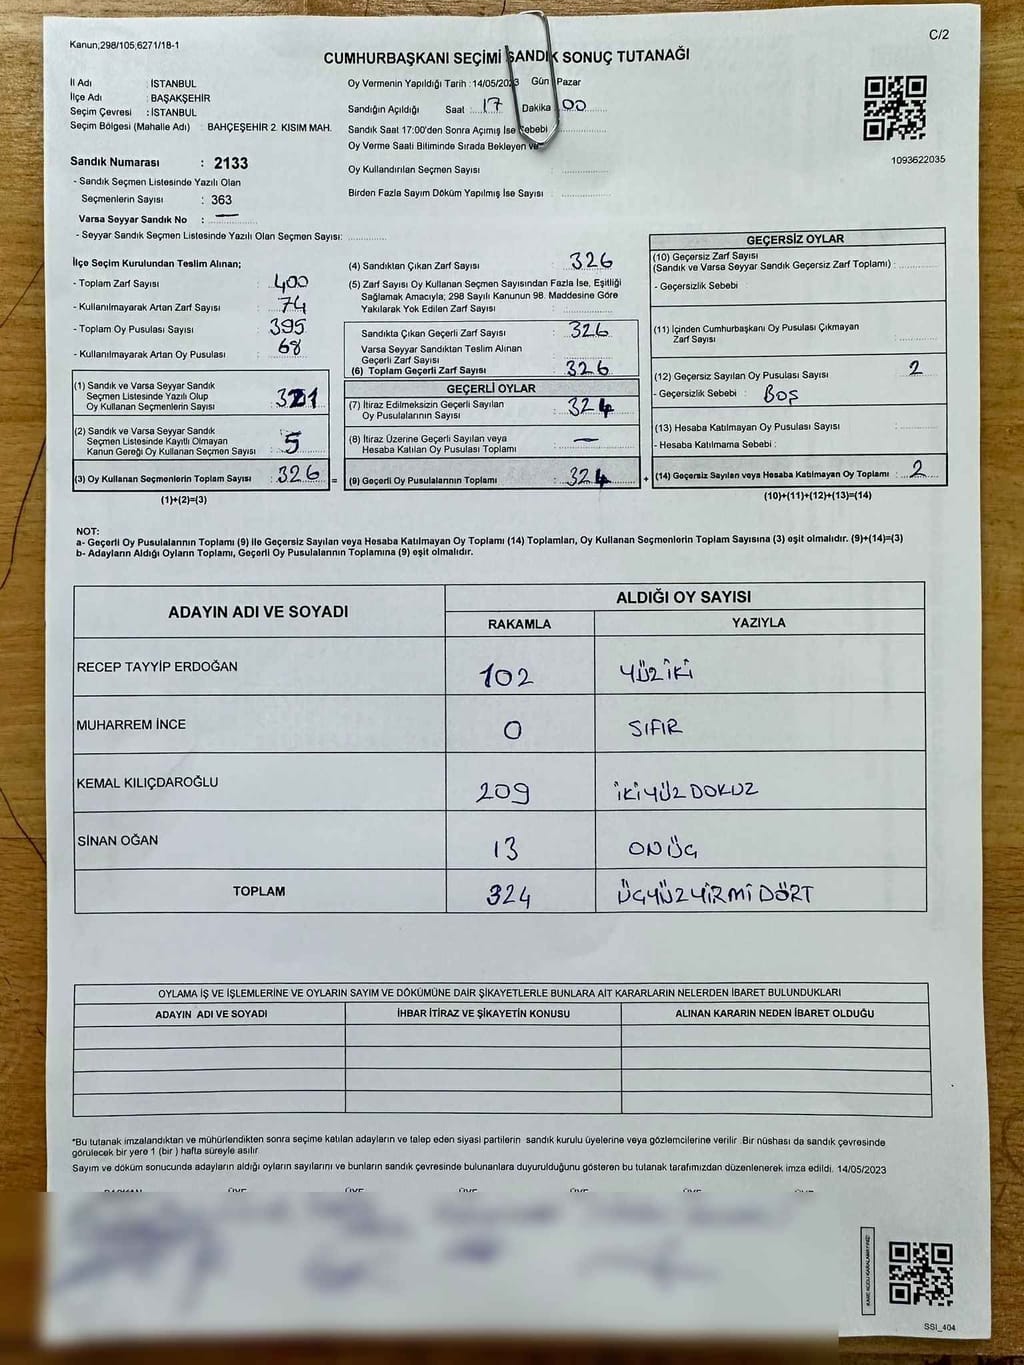 Kanun,298/105,6271/18-1
C/2
CUMHURBAŞKANI SEÇİMİ SANDIK SONUÇ TUTANAĞI
İl Adı : İSTANBUL
İlçe Adı : BAŞAKŞEHİR
Seçim Çevresi : İSTANBUL
Seçim Bölgesi (Mahalle Adı) : BAHÇEŞEHİR 2. KISIM MAH.
Oy Vermenin Yapıldığı Tarih : 14/05/2023 Gün Pazar
Sandığın Açıldığı Saat : 17 Dakika : 00
Sandık Saat 17:00'den Sonra Açımış İse Sebebi
Oy Verme Saati Bitiminde Sırada Bekleyen ve
Oy Kullandırılan Seçmen Sayısı :
Birden Fazla Sayım Döküm Yapılmış İse Sayısı :
1093622035
Sandık Numarası : 2133
- Sandık Seçmen Listesinde Yazılı Olan
Seçmenlerin Sayısı : 363
Varsa Seyyar Sandık No : —
- Seyyar Sandık Seçmen Listesinde Yazılı Olan Seçmen Sayısı:
İlçe Seçim Kurulundan Teslim Alınan;
- Toplam Zarf Sayısı : 400
- Kullanılmayarak Artan Zarf Sayısı : 74
- Toplam Oy Pusulası Sayısı : 395
- Kullanılmayarak Artan Oy Pusulası : 68
(1) Sandık ve Varsa Seyyar Sandık
Seçmen Listesinde Yazılı Olup
Oy Kullanan Seçmenlerin Sayısı : 321
(2) Sandık ve Varsa Seyyar Sandık
Seçmen Listesinde Kayıtlı Olmayan
Kanun Gereği Oy Kullanan Seçmen Sayısı : 5
(3) Oy Kullanan Seçmenlerin Toplam Sayısı : 326
(1)+(2)=(3)
(4) Sandıktan Çıkan Zarf Sayısı : 326
(5) Zarf Sayısı Oy Kullanan Seçmen Sayısından Fazla İse, Eşitliği
Sağlamak Amacıyla; 298 Sayılı Kanunun 98. Maddesine Göre
Yakılarak Yok Edilen Zarf Sayısı :
Sandıkta Çıkan Geçerli Zarf Sayısı : 326
Varsa Seyyar Sandıktan Teslim Alınan
Geçerli Zarf Sayısı :
(6) Toplam Geçerli Zarf Sayısı : 326
GEÇERLİ OYLAR
(7) İtiraz Edilmeksizin Geçerli Sayılan
Oy Pusulalarının Sayısı : 324
(8) İtiraz Üzerine Geçerli Sayılan veya
Hesaba Katılan Oy Pusulası Toplamı : —
= (9) Geçerli Oy Pusulalarının Toplamı : 324
GEÇERSİZ OYLAR
(10) Geçersiz Zarf Sayısı
(Sandık ve Varsa Seyyar Sandık Geçersiz Zarf Toplamı) :
- Geçersizlik Sebebi :
(11) İçinden Cumhurbaşkanı Oy Pusulası Çıkmayan
Zarf Sayısı :
(12) Geçersiz Sayılan Oy Pusulası Sayısı : 2
- Geçersizlik Sebebi : BOŞ
(13) Hesaba Katılmayan Oy Pusulası Sayısı :
- Hesaba Katılmama Sebebi :
+ (14) Geçersiz Sayılan veya Hesaba Katılmayan Oy Toplamı : 2
(10)+(11)+(12)+(13)=(14)
NOT:
a- Geçerli Oy Pusulalarının Toplamı (9) ile Geçersiz Sayılan veya Hesaba Katılmayan Oy Toplamı (14) Toplamları, Oy Kullanan Seçmenlerin Toplam Sayısına (3) eşit olmalıdır. (9)+(14)=(3)
b- Adayların Aldığı Oyların Toplamı, Geçerli Oy Pusulalarının Toplamına (9) eşit olmalıdır.
ADAYIN ADI VE SOYADI ALDIĞI OY SAYISI
RAKAMLA YAZIYLA
RECEP TAYYİP ERDOĞAN 102 YÜZ İKİ
MUHARREM İNCE 0 SIFIR
KEMAL KILIÇDAROĞLU 209 İKİYÜZ DOKUZ
SİNAN OĞAN 13 ON ÜÇ
TOPLAM 324 ÜÇYÜZ YİRMİ DÖRT
OYLAMA İŞ VE İŞLEMLERİNE VE OYLARIN SAYIM VE DÖKÜMÜNE DAİR ŞİKAYETLERLE BUNLARA AİT KARARLARIN NELERDEN İBARET BULUNDUKLARI
ADAYIN ADI VE SOYADI İHBAR İTİRAZ VE ŞİKAYETİN KONUSU ALINAN KARARIN NEDEN İBARET OLDUĞU
*Bu tutanak imzalandıktan ve mühürlendikten sonra seçime katılan adayların ve talep eden siyasi partilerin sandık kurulu üyelerine veya gözlemcilerine verilir. Bir nüshası da sandık çevresinde
görülecek bir yere 1 (bir ) hafta süreyle asılır.
Sayım ve döküm sonucunda adayların aldığı oyların sayılarını ve bunların sandık çevresinde bulunanlara duyurulduğunu gösteren bu tutanak tarafımızdan düzenlenerek imza edildi. 14/05/2023
BAŞKAN ÜYE ÜYE ÜYE ÜYE ÜYE ÜYE
KARE KODU KARALAMAYINIZ!
SSI_404